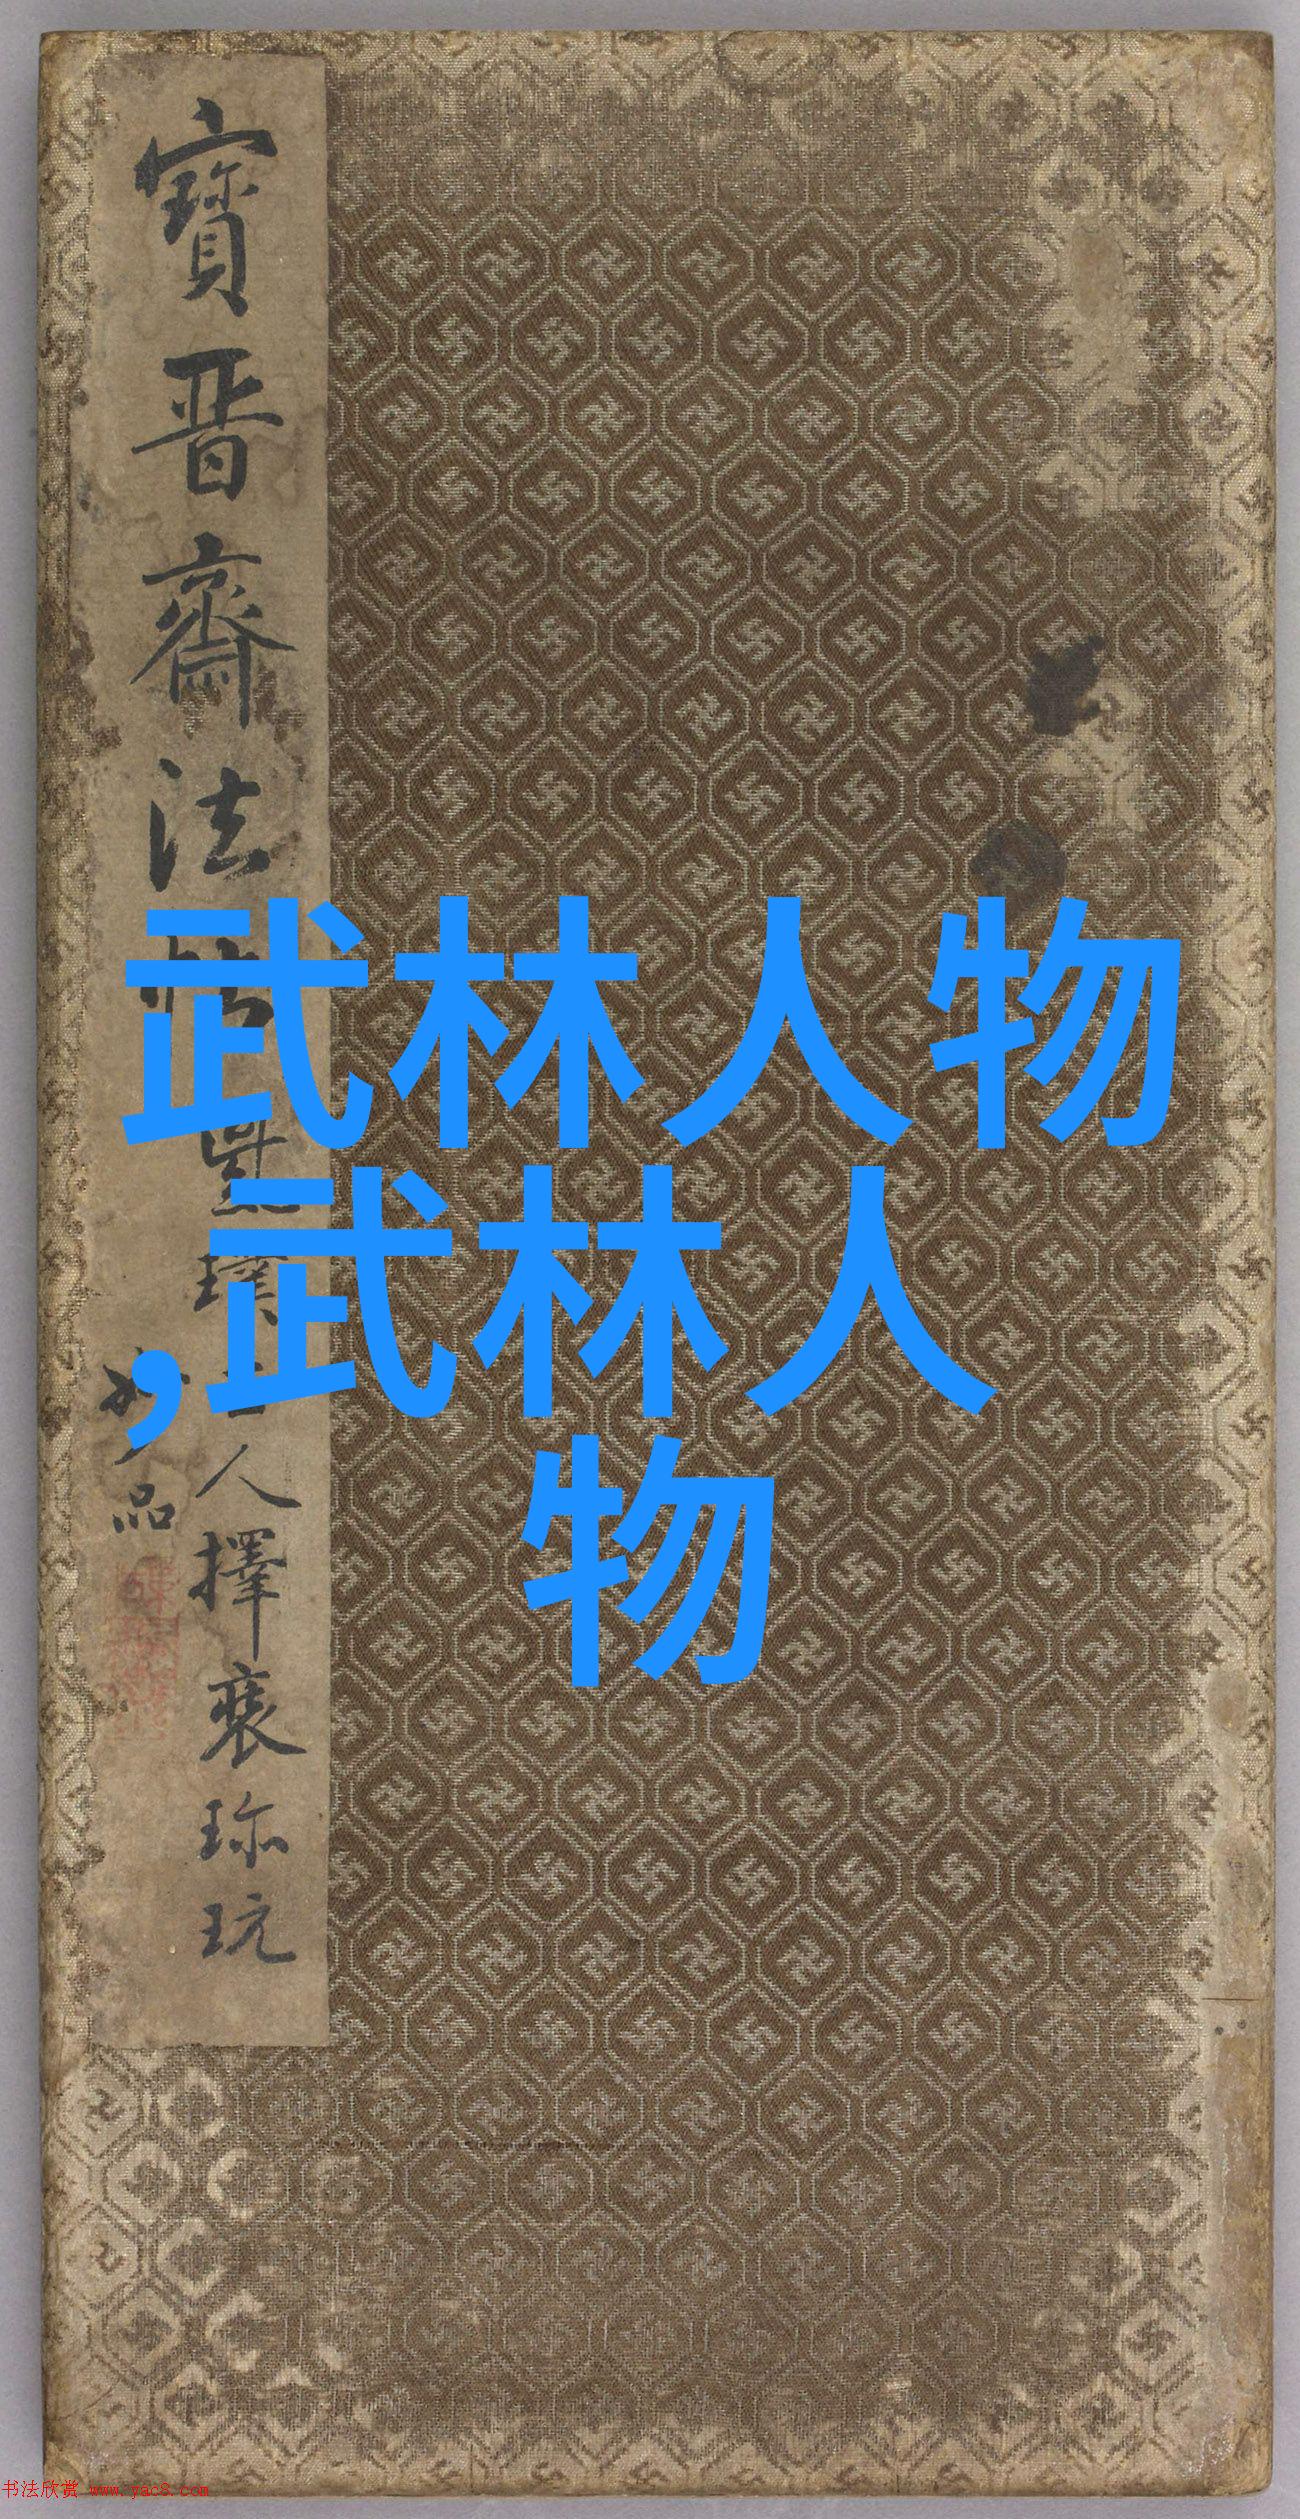 寶晉齋法帖
人擇裘珎玩
妙品
武林人物
,武林人
物
书法欣赏 www.yac8.com